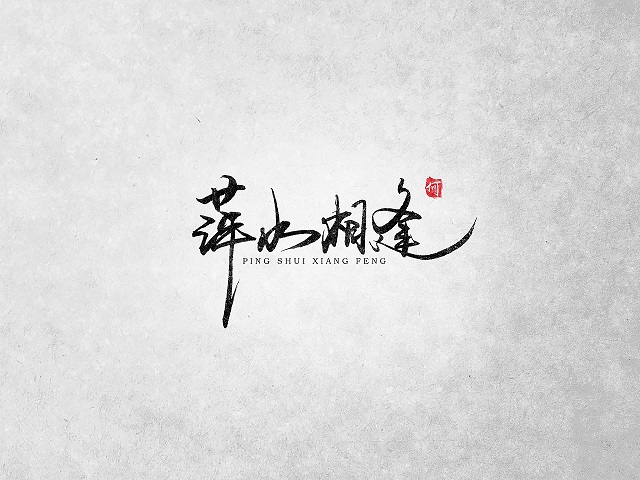 萍水相逢
何
PING SHUI XIANG FENG